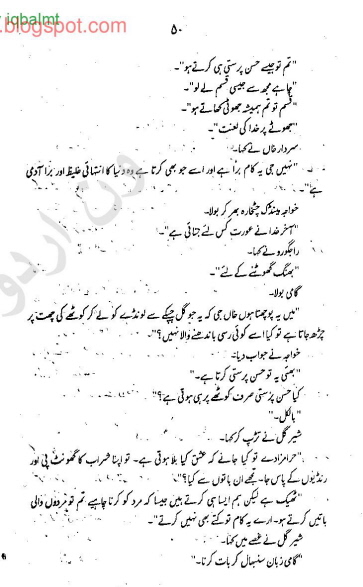 iqbalmt
.blogspot.com
۵۰
"تم تو جیسے حسن پرستی ہی کرتے ہو"۔
"چاہے مجھ سے جیسی قسم لے لو"۔
"قسم تو تم ہمیشہ جھوٹی کھاتے ہو"۔
"جھوٹے پر خدا کی لعنت"۔
سردار خاں نے کہا۔
"نہیں جی یہ کام برا ہے اور اسے جو بھی کرتا ہے وہ دنیا کا انتہائی غلیظ اور برا آدمی
ہے"۔
خواجہ مینڈک چٹخارہ بھر کر بولا۔
"آخر خدا نے عورت کس لئے بنائی ہے"۔
راجگورو نے کہا۔
"بھنگ گھوٹنے کے لئے"۔
گامی بولا۔
"میں یہ پوچھتا ہوں خاں جی کہ یہ جو گل چپکے سے لونڈے کو لے کر کوٹھے کی چھت پر
چڑھ جاتا ہے تو کیا اسے کوئی رسی باندھنے والا نہیں؟"۔
خواجہ نے جواب دیا۔
"بھئی یہ تو حسن پرستی کرتا ہے۔"
کیا حسن پرستی صرف کوٹھے پر ہی ہوتی ہے؟"
"بالکل۔"
شیر گل نے تڑپ کر کہا۔
"حرامزادے تو کیا جانے کہ عشق کیا بلا ہوتی ہے۔ تو اپنا شراب کا گھونٹ پی اور
رنڈیوں کے پاس جا۔ تجھے ان باتوں سے کیا؟"۔
"ٹھیک ہے لیکن ہم ایسا ہی کرتے ہیں جیسا کہ مرد کو کرنا چاہیے تم تو مردوں والی
باتیں کرتے ہو۔ ارے یہ کام تو کتے بھی نہیں کرتے"۔
شیر گل نے غصے میں کہا۔
"گامی زبان سنبھال کر بات کرنا۔"